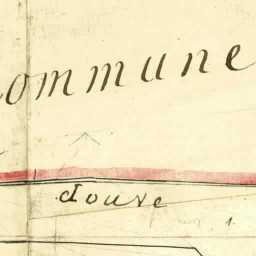 ommune
douve